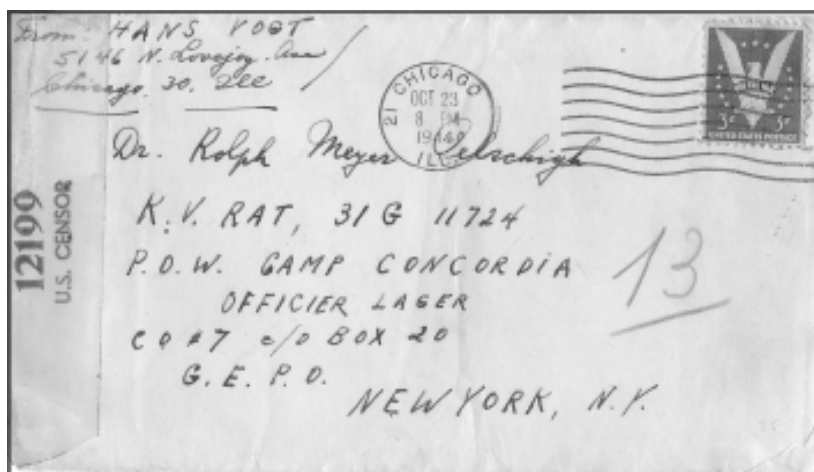 From: HANS VOGT
5146 N. Lovejoy Ave
Chicago. 30, Ill
CHICAGO
OCT 23
8 PM
1944
ILL.
21
3¢ 3¢
UNITED STATES POSTAGE
Dr. Rolph Meyer
K.V. RAT, 31 G 11724
P.O.W. CAMP CONCORDIA
OFFICIER LAGER
CO #7 c/o BOX 20
G.E.P.O.
NEW YORK, N.Y.
13
12199
U.S. CENSOR